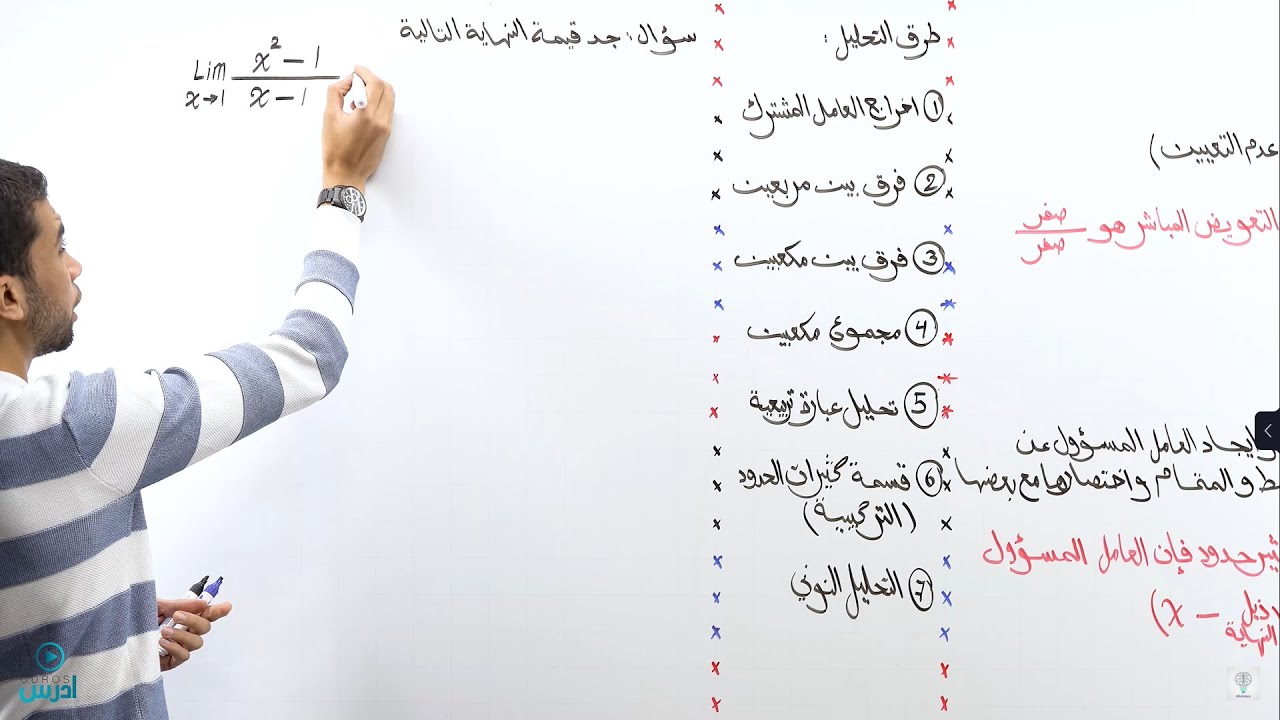 عدم التعيين)
التعويض المباشر هو صفر
صفر
ايجاد العامل المسؤول عن
ط والمقام واختصارها مع بعضها
حدود فإن العامل المسؤول
(x - ذيل
النهاية
طرق التحليل :
① اخراج العامل المشترك
② فرق بين مربعين
③ فرق بين مكعبين
④ مجموع مكعبين
⑤ تحليل عبارة تربيعية
⑥ قسمة كثيرات الحدود
(التركيبية)
⑦ التحليل النوني
سؤال : جد قيمة النهاية التالية
Lim x² – 1
x→1 x – 1
ODROS
ادرس